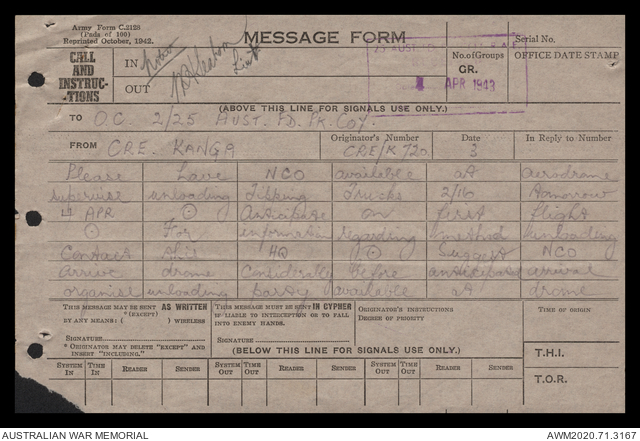 Army Form C.2128
(Pads of 100)
Reprinted October, 1942.
MESSAGE FORM
Serial No.
CALL AND INSTRUC-TIONS
IN
OUT
No. of Groups
GR.
OFFICE DATE STAMP
APR 1943
(ABOVE THIS LINE FOR SIGNALS USE ONLY.)
TO O.C. 2/25 AUST. FD. PK. COY.
FROM CRE. KANGA
Originator's Number CRE/K 720
Date 3
In Reply to Number
Please have NCO available at aerodrome
supervise unloading Tipping Trucks 2/16 tomorrow
4 APR anticipate on first flight
For information regarding method unloading
Contact Div HQ Suggest NCO
arrive drome Considerably before anticipated arrival
organise unloading party available at drome
THIS MESSAGE MAY BE SENT AS WRITTEN
*(EXCEPT)
BY ANY MEANS: ( ) WIRELESS
SIGNATURE
*ORIGINATOR MAY DELETE "EXCEPT" AND INSERT "INCLUDING."
THIS MESSAGE MUST BE SENT IN CYPHER
IF LIABLE TO INTERCEPTION OR TO FALL INTO ENEMY HANDS.
SIGNATURE
ORIGINATOR'S INSTRUCTIONS
DEGREE OF PRIORITY
TIME OF ORIGIN
(BELOW THIS LINE FOR SIGNALS USE ONLY.)
T.H.I.
T.O.R.
SYSTEM IN TIME IN READER SENDER SYSTEM OUT TIME OUT READER SENDER SYSTEM OUT TIME OUT READER SENDER
AUSTRALIAN WAR MEMORIAL
AWM2020.71.3167